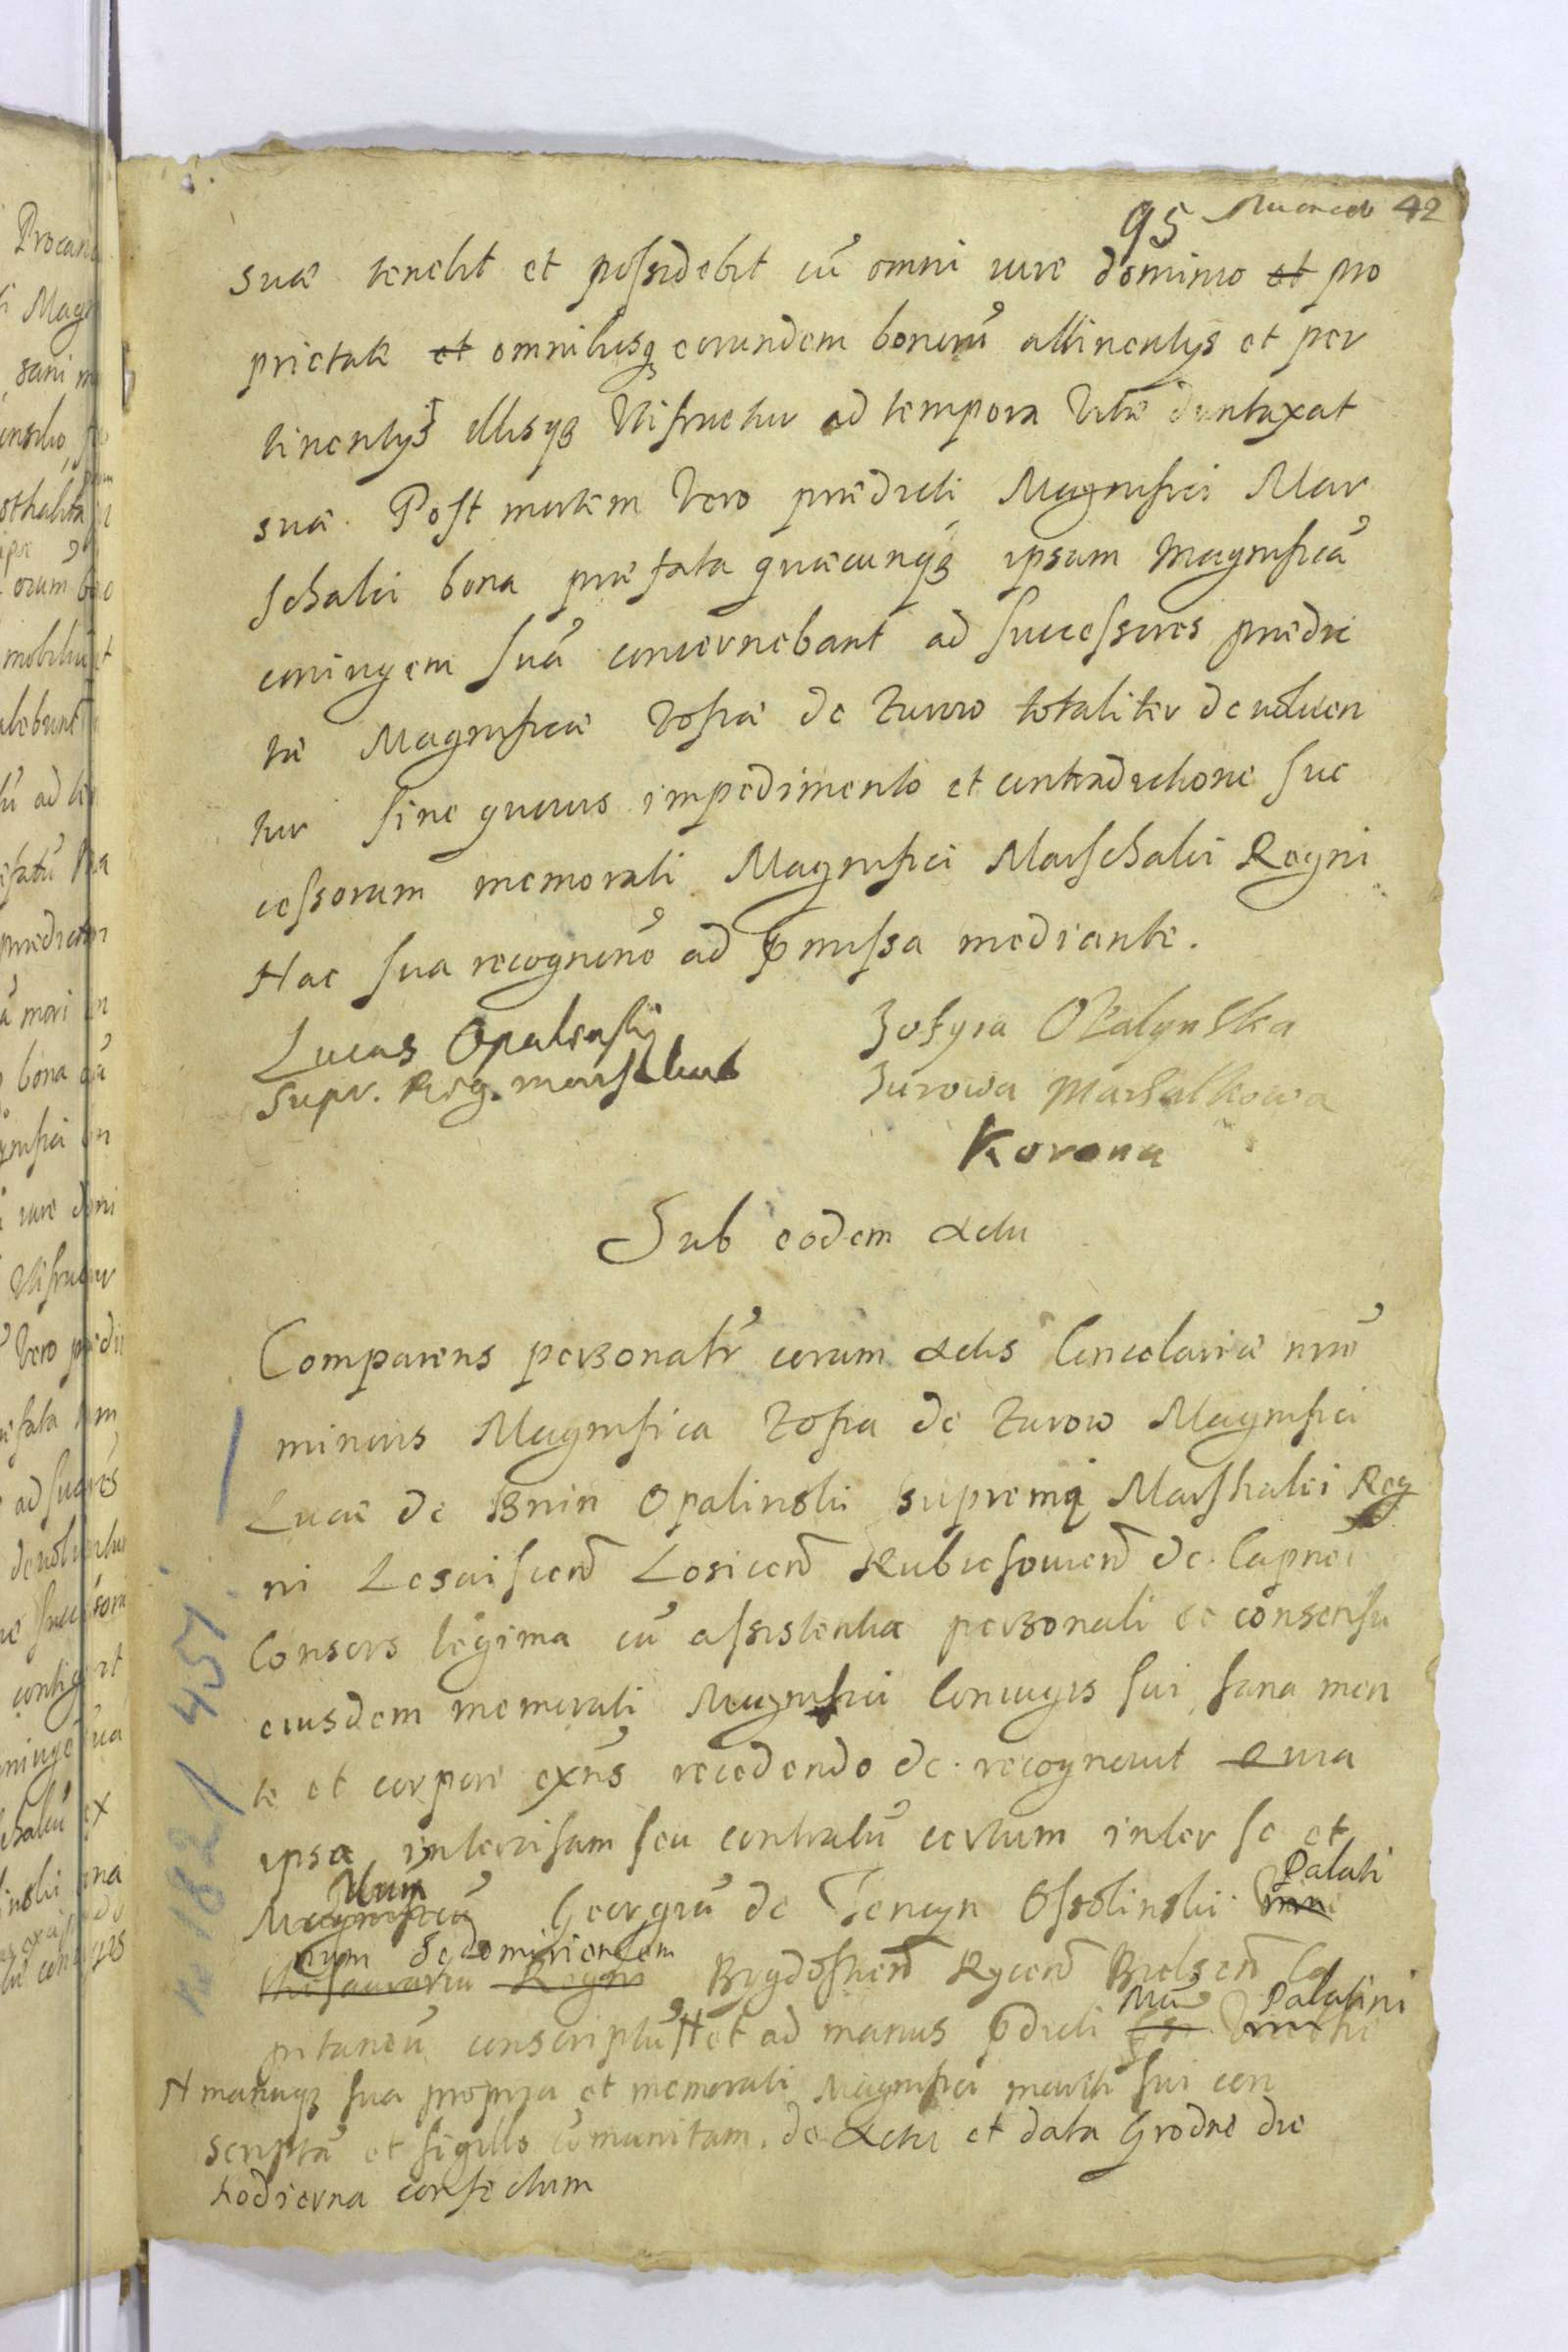 95 42
suæ tenebit et possidebit cũ omni iure dominio et pro
prietate et omnibusq eorundem bonorũ attinentijs et per
tinentijs illisqȝ Utifruetur ad tempora Vitæ duntaxat
suæ. Post mortem Vero prædicti Magnifici Mar
schalci bona præfata quæcunqȝ ipsam Magnificã
coniugem suã concernebant ad successores prædic
tæ Magnificæ Zofiæ de Zurow totaliter deuoluen
tur sine quouis impedimento et contradictione suc
cessorum memorati Magnifici Marschalci Regni
Hac sua recognitione ad præmissa mediante.
Lucas Opalenski
Supr. Reg. marschalcus
Zofyia Opalynska
Zurowa Marszalkowa
Korona
Sub eodem Actu
Comparens personalr coram Actis Cancelariæ nræ
minoris Magnifica Zofia de Zurow Magnifici
Lucæ de Bnin Opalinskii supremi Marshalci Reg
ni Lesaiscen Losicen Rubiesouien de. Capnei
Consors legima cũ assistentia personali ac consensu
eiusdem memorati Magnifici Coniugis sui sana men
te et corpore exñs recedendo de. recognouit Quia
ipsa intercisam seu contractũ certum inter se et
Magnificũ Illum Georgiũ de Tenczyn Ossolinskii Palati
num Sedomiriensem Thesaurariũ Regni Bydgostien Rycen Bielsen Ca
pitaneũ conscriptũ # et ad manus prædicti Mci Palatini
# manuqȝ sua propria et memorati Magnifici mariti sui con
scriptã et sigillo cõmunitam. de Actu et data Grodnæ die
hodierna confectum